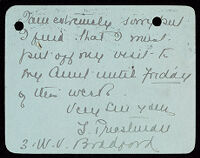 I am extremely sorry but
I find that I must
put off my visit to
my Aunt until friday
of this week.
Very
S.
3. W. V. Bradford